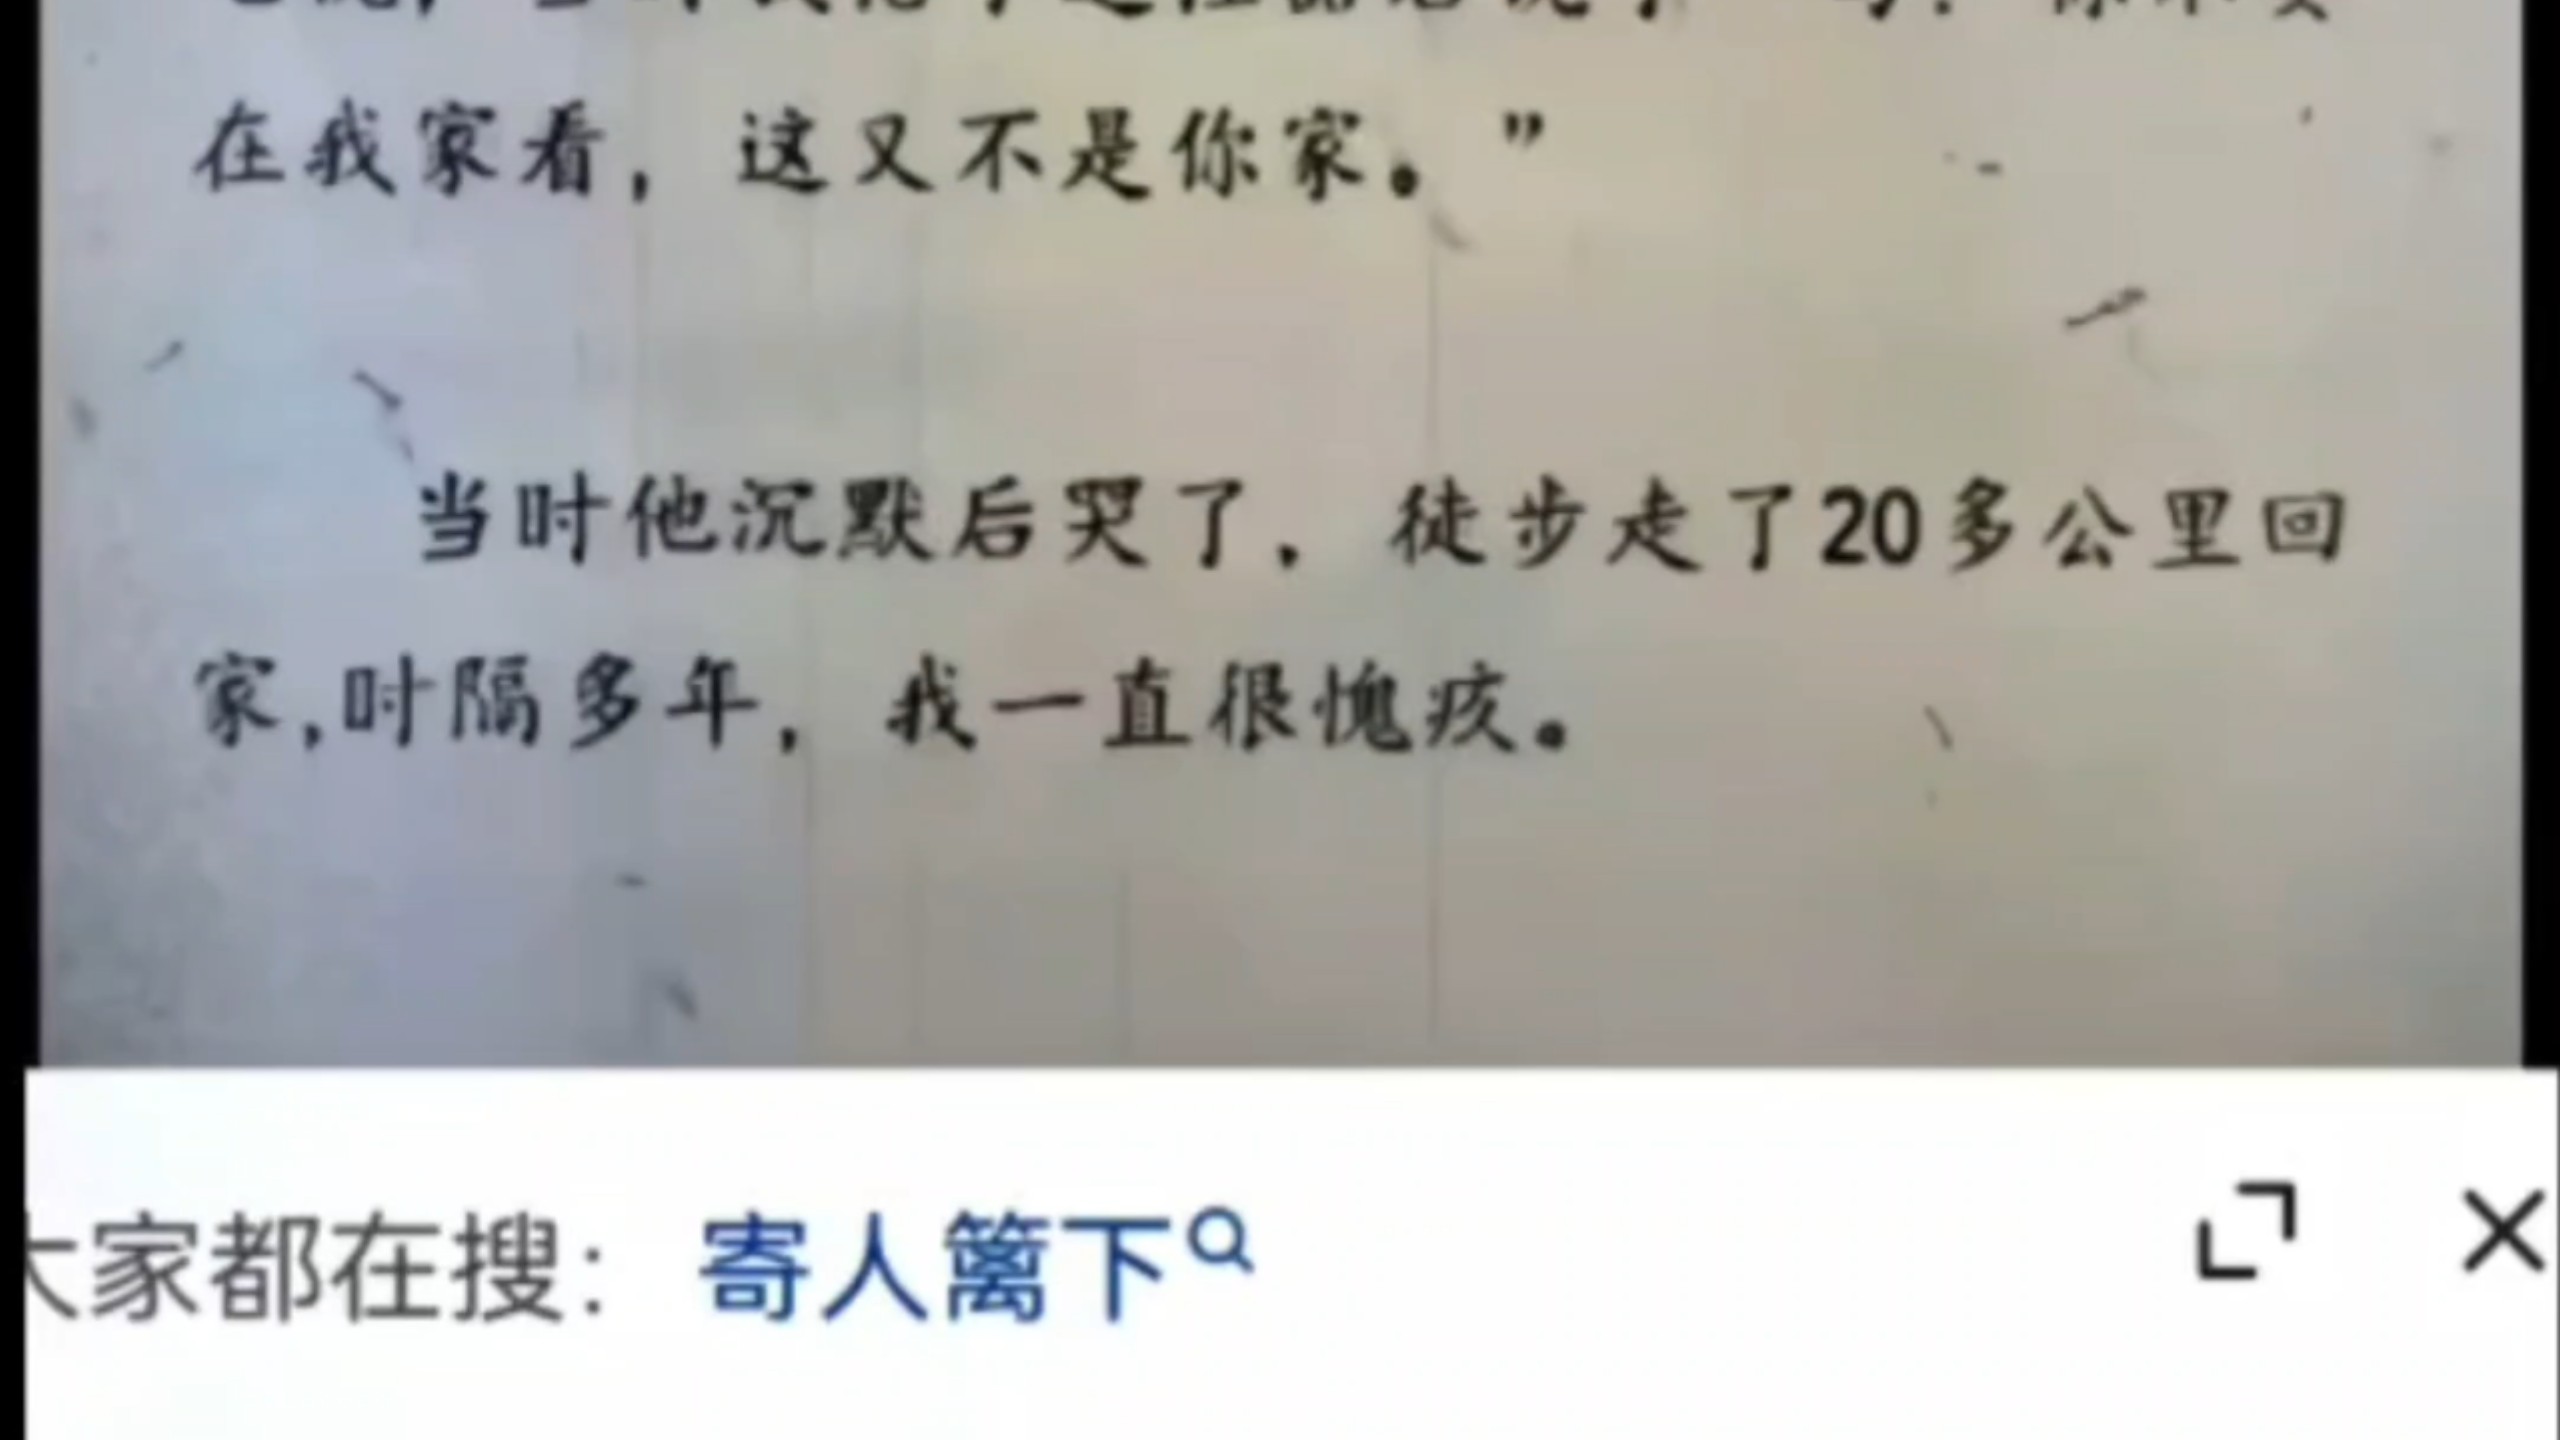 在我家看，这又不是你家。”
当时他沉默后哭了，徒步走了20多公里回
家,时隔多年，我一直很愧疚。
大家都在搜：寄人篱下